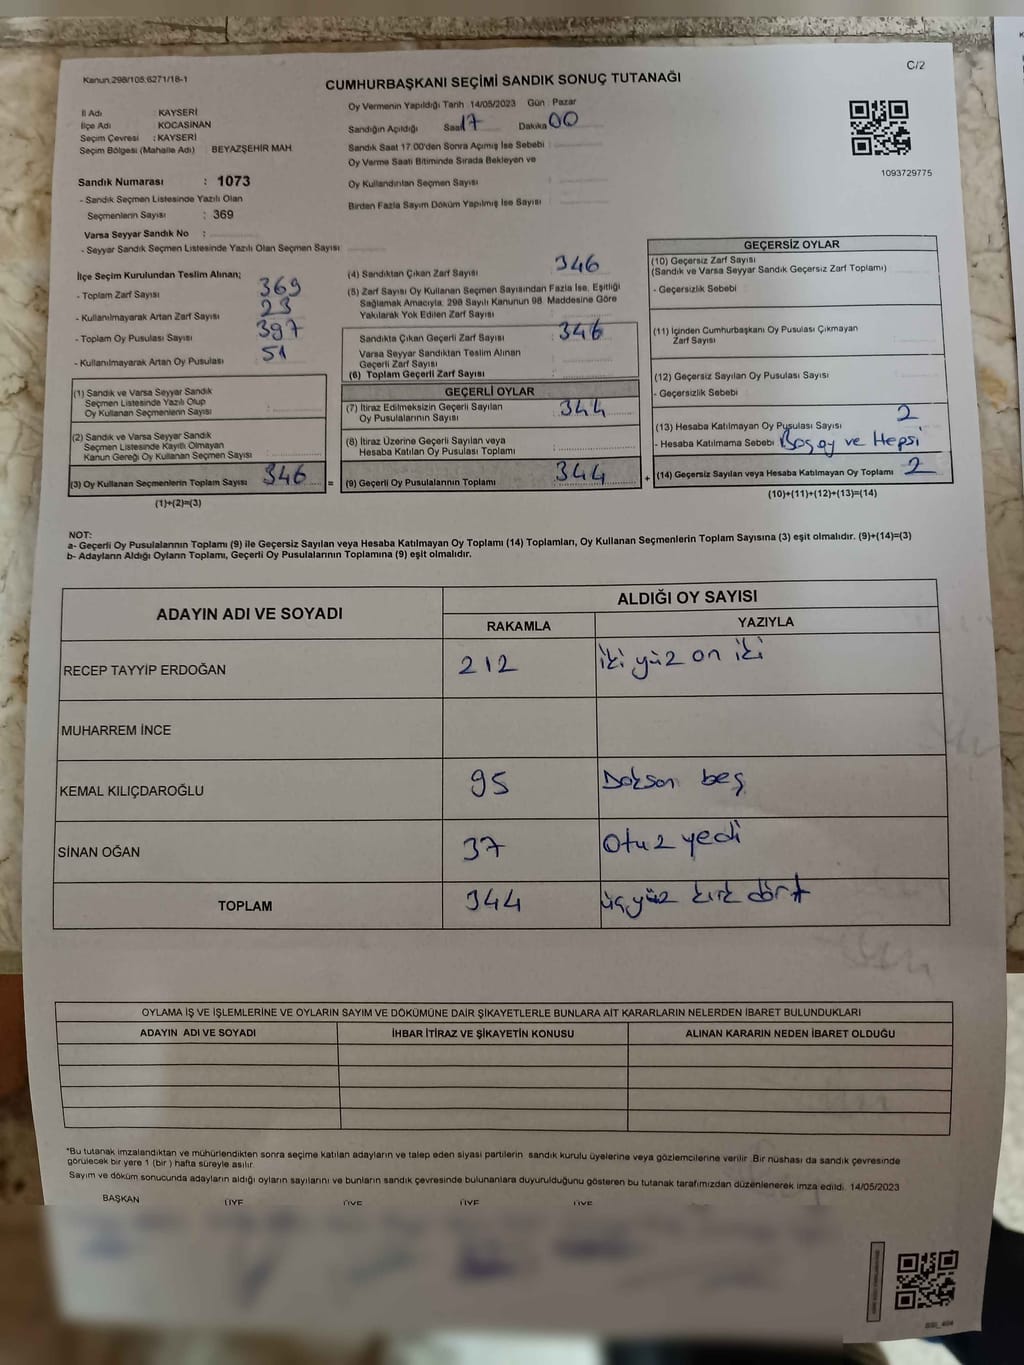 Kanun.298/105;6271/18-1
C/2
CUMHURBAŞKANI SEÇİMİ SANDIK SONUÇ TUTANAĞI
İl Adı KAYSERİ
İlçe Adı KOCASİNAN
Seçim Çevresi : KAYSERİ
Seçim Bölgesi (Mahalle Adı) BEYAZŞEHİR MAH
Oy Vermenin Yapıldığı Tarih 14/05/2023 Gün : Pazar
Sandığın Açıldığı Saat 17 Dakika 00
Sandık Saat 17.00'den Sonra Açımış İse Sebebi :
Oy Verme Saati Bitiminde Sırada Bekleyen ve
Oy Kullandırılan Seçmen Sayısı :
Birden Fazla Sayım Döküm Yapılmış İse Sayısı :
1093729775
Sandık Numarası : 1073
- Sandık Seçmen Listesinde Yazılı Olan
Seçmenlerin Sayısı : 369
Varsa Seyyar Sandık No :
- Seyyar Sandık Seçmen Listesinde Yazılı Olan Seçmen Sayısı
İlçe Seçim Kurulundan Teslim Alınan;
- Toplam Zarf Sayısı 369
- Kullanılmayarak Artan Zarf Sayısı 23
- Toplam Oy Pusulası Sayısı 397
- Kullanılmayarak Artan Oy Pusulası 51
(1) Sandık ve Varsa Seyyar Sandık
Seçmen Listesinde Yazılı Olup
Oy Kullanan Seçmenlerin Sayısı :
(2) Sandık ve Varsa Seyyar Sandık
Seçmen Listesinde Kayıtlı Olmayan
Kanun Gereği Oy Kullanan Seçmen Sayısı :
(3) Oy Kullanan Seçmenlerin Toplam Sayısı 346
(1)+(2)=(3)
=
(4) Sandıktan Çıkan Zarf Sayısı 346
(5) Zarf Sayısı Oy Kullanan Seçmen Sayısından Fazla İse, Eşitliği
Sağlamak Amacıyla, 298 Sayılı Kanunun 98. Maddesine Göre
Yakılarak Yok Edilen Zarf Sayısı
Sandıkta Çıkan Geçerli Zarf Sayısı 346
Varsa Seyyar Sandıktan Teslim Alınan
Geçerli Zarf Sayısı
(6) Toplam Geçerli Zarf Sayısı :
GEÇERLİ OYLAR
(7) İtiraz Edilmeksizin Geçerli Sayılan
Oy Pusulalarının Sayısı : 344
(8) İtiraz Üzerine Geçerli Sayılan veya
Hesaba Katılan Oy Pusulası Toplamı :
(9) Geçerli Oy Pusulalarının Toplamı : 344
+
GEÇERSİZ OYLAR
(10) Geçersiz Zarf Sayısı
(Sandık ve Varsa Seyyar Sandık Geçersiz Zarf Toplamı)
- Geçersizlik Sebebi
(11) İçinden Cumhurbaşkanı Oy Pusulası Çıkmayan
Zarf Sayısı
(12) Geçersiz Sayılan Oy Pusulası Sayısı
- Geçersizlik Sebebi
(13) Hesaba Katılmayan Oy Pusulası Sayısı 2
- Hesaba Katılmama Sebebi Boş oy ve Hepsi
(14) Geçersiz Sayılan veya Hesaba Katılmayan Oy Toplamı 2
(10)+(11)+(12)+(13)=(14)
NOT:
a- Geçerli Oy Pusulalarının Toplamı (9) ile Geçersiz Sayılan veya Hesaba Katılmayan Oy Toplamı (14) Toplamları, Oy Kullanan Seçmenlerin Toplam Sayısına (3) eşit olmalıdır. (9)+(14)=(3)
b- Adayların Aldığı Oyların Toplamı, Geçerli Oy Pusulalarının Toplamına (9) eşit olmalıdır.
ADAYIN ADI VE SOYADI
ALDIĞI OY SAYISI
RAKAMLA YAZIYLA
RECEP TAYYİP ERDOĞAN 212 iki yüz on iki
MUHARREM İNCE
KEMAL KILIÇDAROĞLU 95 Doksan beş
SİNAN OĞAN 37 Otuz yedi
TOPLAM 344 üçyüz kırk dört
OYLAMA İŞ VE İŞLEMLERİNE VE OYLARIN SAYIM VE DÖKÜMÜNE DAİR ŞİKAYETLERLE BUNLARA AİT KARARLARIN NELERDEN İBARET BULUNDUKLARI
ADAYIN ADI VE SOYADI İHBAR İTİRAZ VE ŞİKAYETİN KONUSU ALINAN KARARIN NEDEN İBARET OLDUĞU
*Bu tutanak imzalandıktan ve mühürlendikten sonra seçime katılan adayların ve talep eden siyasi partilerin sandık kurulu üyelerine veya gözlemcilerine verilir. Bir nüshası da sandık çevresinde
görülecek bir yere 1 (bir) hafta süreyle asılır.
Sayım ve döküm sonucunda adayların aldığı oyların sayılarını ve bunların sandık çevresinde bulunanlara duyurulduğunu gösteren bu tutanak tarafımızdan düzenlenerek imza edildi. 14/05/2023
BAŞKAN ÜYE ÜYE ÜYE ÜYE